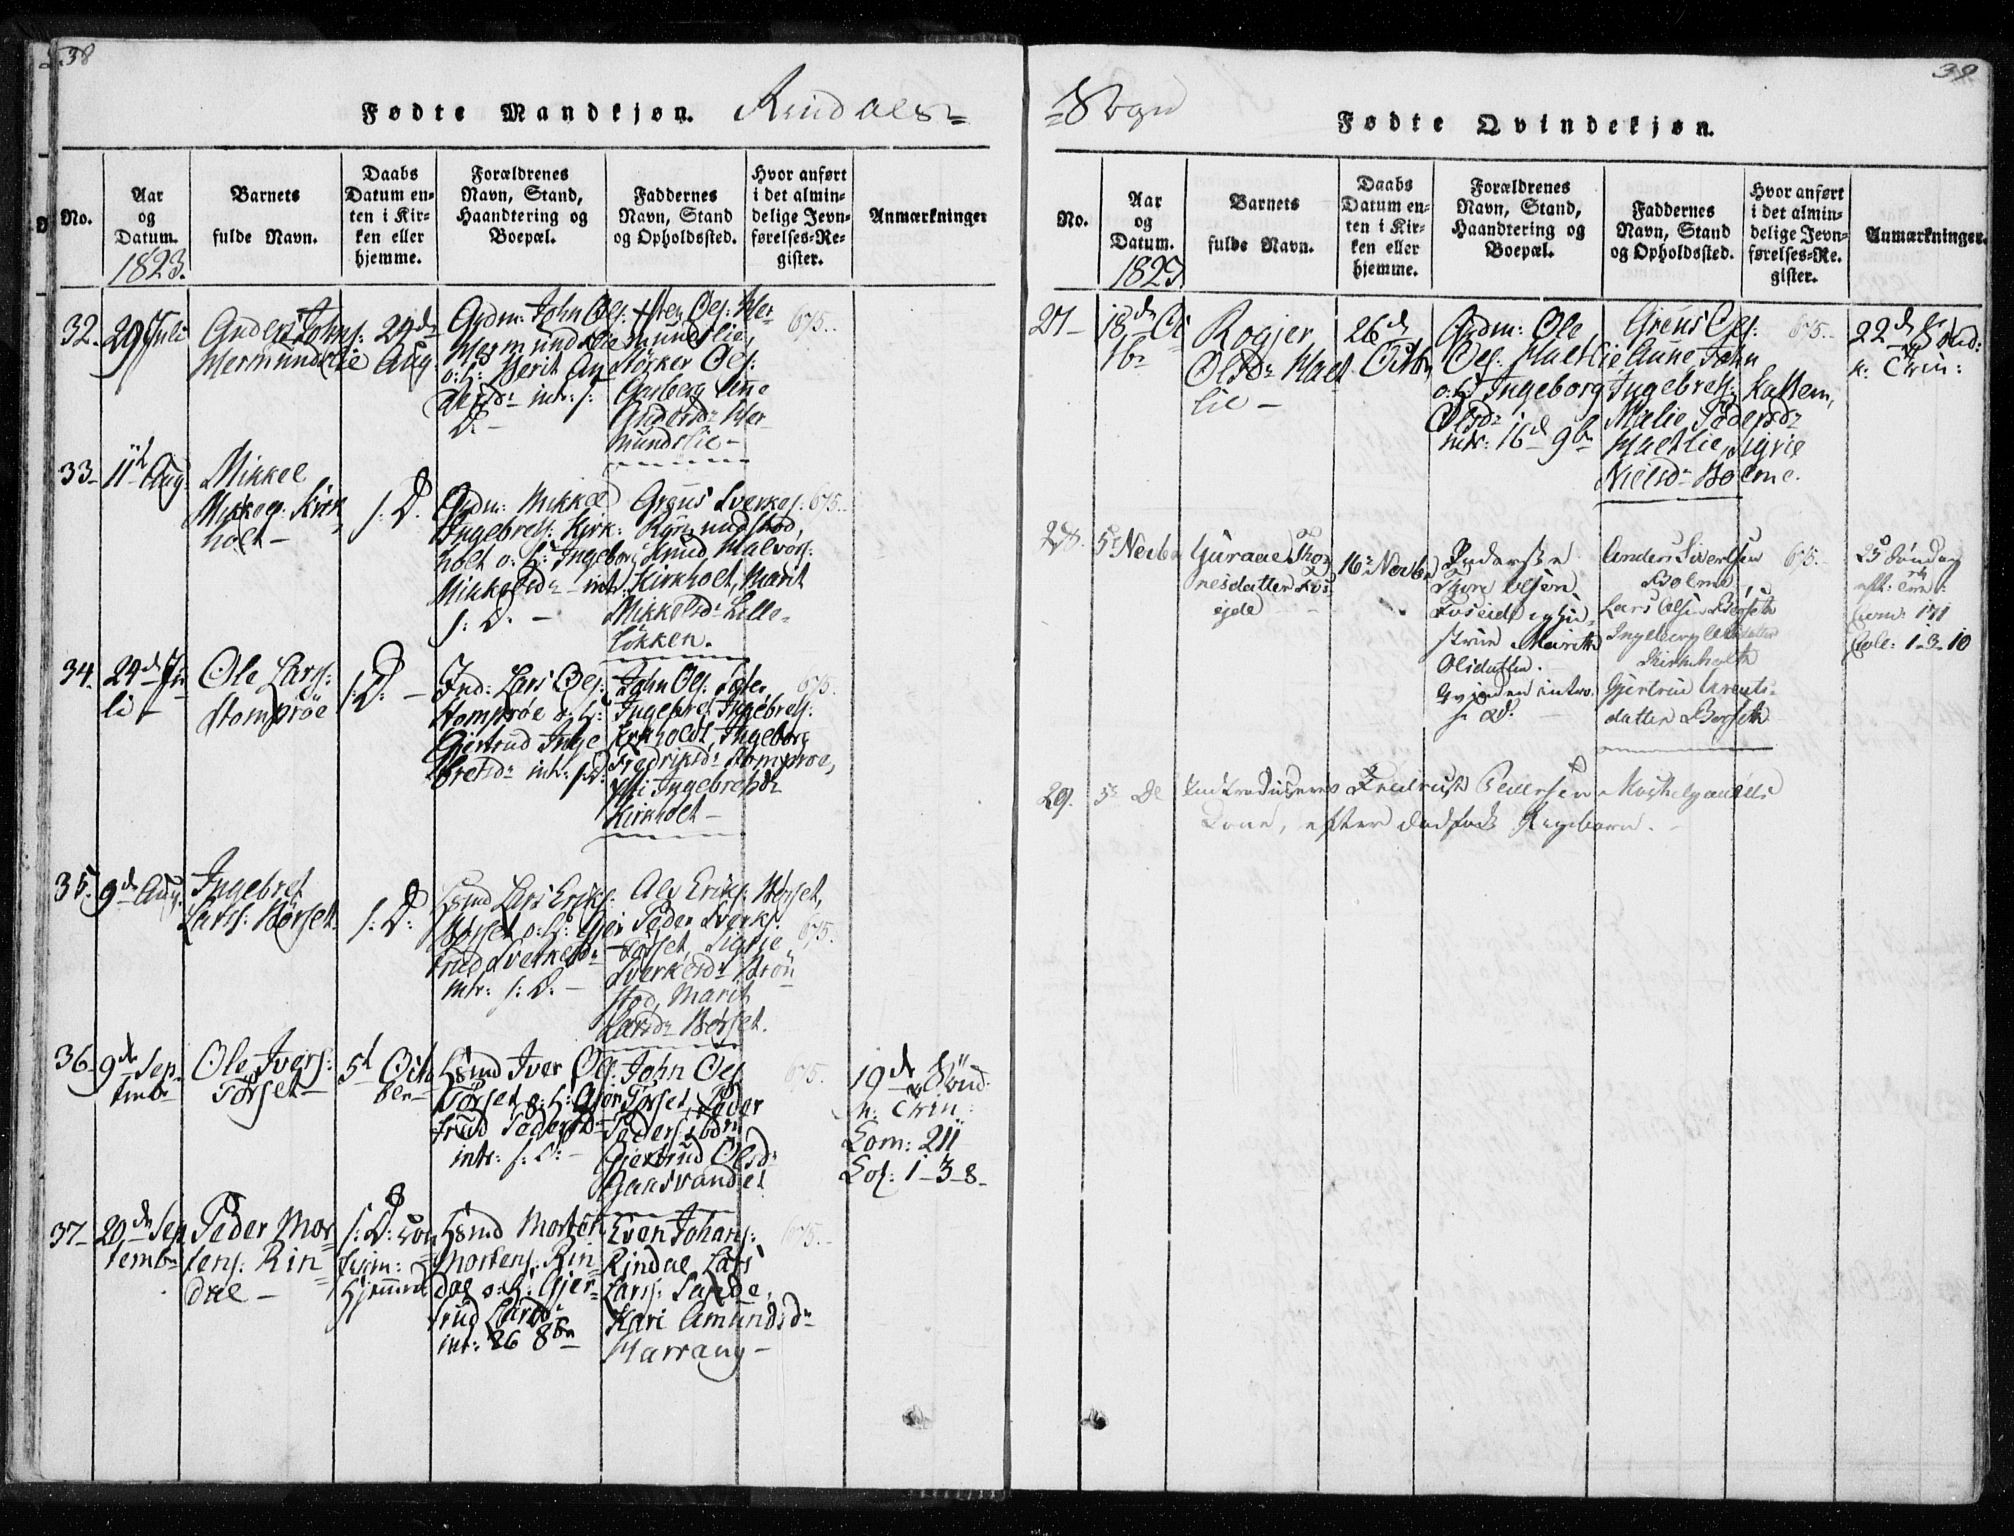 38
Fødte Mandkjøn. Rindals=
No.
Aar
og
Datum.
1823.
Barnets
fulde Navn.
Daabs
Datum en-
ten i Kir-
ken eller
hjemme.
Forældrenes
Navn, Stand,
Haandtering og
Boepæl.
Faddernes
Navn, Stand
og Opholdssted.
Hvor anført
i det almin-
delige Jevn-
førelses-Re-
gister.
Anmærkninger
32. 29 Juli
Anders Johns:
Mermundslie
24de
Aug.
Gdm: John Ols:
Mermundslie
o: H: Berit An
dersdr intr: s:
D. –
Sten Ols: Mer-
mundslie,
Størker Ols:
Aarberg Ane
Andersdr Mer
mundslie –
675.
33– 11te Aug.
Mikkel
Mikkels: Kirk
holt –
s: D.
Gdm: Mikkel
Ingebrets: Kirk:
holt o: H: Ingebor
Mikkelsdr – intr.
s: D. –
Grøus Sverkes:
Rønningstad,
Knud Halvors:
Kirkholt, Marit
Mikkelsdr Lille-
løkken.
675.
34. 24de Ju
li –
Ole Lars:
Stomprøe
s: D: –
Ind: Lars Ols:
Stomprøe o: H:
Gjertrud Inge
bretsdr intr: s: D:
John Ols:
Ingebret Ingebrets:
Kirkholt, Ingeborg
Fredriksdr Stomprøe,
Ingebretsdr
Kirkholt –
675.
35. 9de Aug.
Ingebret
Lars: Børset
s: D:
Hsmd Lars Eriks:
Børset o: H: Gjer
trud Sverkesdr
intr: s: D: –
Ole Eriks: Børset,
Peder Sverks:
Torset, Sigrie
Sverkesdr Brøn
stad, Marit
Larsdr Børset.
675.
36– 9de Sep
tembr
Ole Ivers:
Torset –
5te Octo
ber–
Hsmd Iver Ols:
Torset o: H: Gjer
trud Pedersdr
intr: s: D: –
John Ols:
Torset, Peder
Peders:
Gjertrud Olsdr
Gaasvandet
675.
19de Sønd:
n: Trin:
Com: 211
Col: 1–3–8–
37– 20de Sep
tembr
Peder Mor
tens: Rin=
dal –
s: D:
Hjemmed
Hsmd Morten
Mortens: Rin
dal o: H: Gjer=
trud Larsdr
intr: 26 8br
Even Johans:
Rindal Lars
Lars: Sande,
Kari Amundsdr
Harrang –
675.
39
=Sogn
Fødte Qvindekjøn.
No.
Aar
og
Datum.
1823
Barnets
fulde Navn.
Daabs
Datum en-
ten i Kir-
ken eller
hjemme.
Forældrenes
Navn, Stand,
Haandtering og
Boepæl.
Faddernes
Navn, Stand
og Opholdssted.
Hvor anført
i det almin-
delige Jevn-
førelses-Re.
gister.
Anmærkninger.
27– 18de Oc
tbr
Rogjer
Olsdr Hæt
lie –
26de
Octbr
Gdm: Ole
Ols: Hætlie
o: H: Ingeborg
Olsdr
intr: 16de 9br
Grøus Ols:
Aune John
Ingebrets: Kattem,
Malie Pedersdr
Hætlie, Sigrie
Nielsdr Bolme.
675.
22de Sønd:
n: Trin:
28. 5te Novbr
Guranne Tho
resdatter Fos
eide
16de Novbr
Inderste
Thore Olsøn
Foseide og Hu-
strue Marith
Olsdatter.
Qvinden intro.
s: D.
Anders Sivertsen
Bolme
Lars Olsen Børseth
Ingeborg Olsdatter
Kirkholth
Gjertrud Arents-
datter Børseth
675.
25 Søndag
eft: Trin:
Com: 171
Col: 1–3–10
29. 5te De Introduseres Fredrich Pedersen Moskelyaunets
Kone, efter dødfødt Pigebarn. –